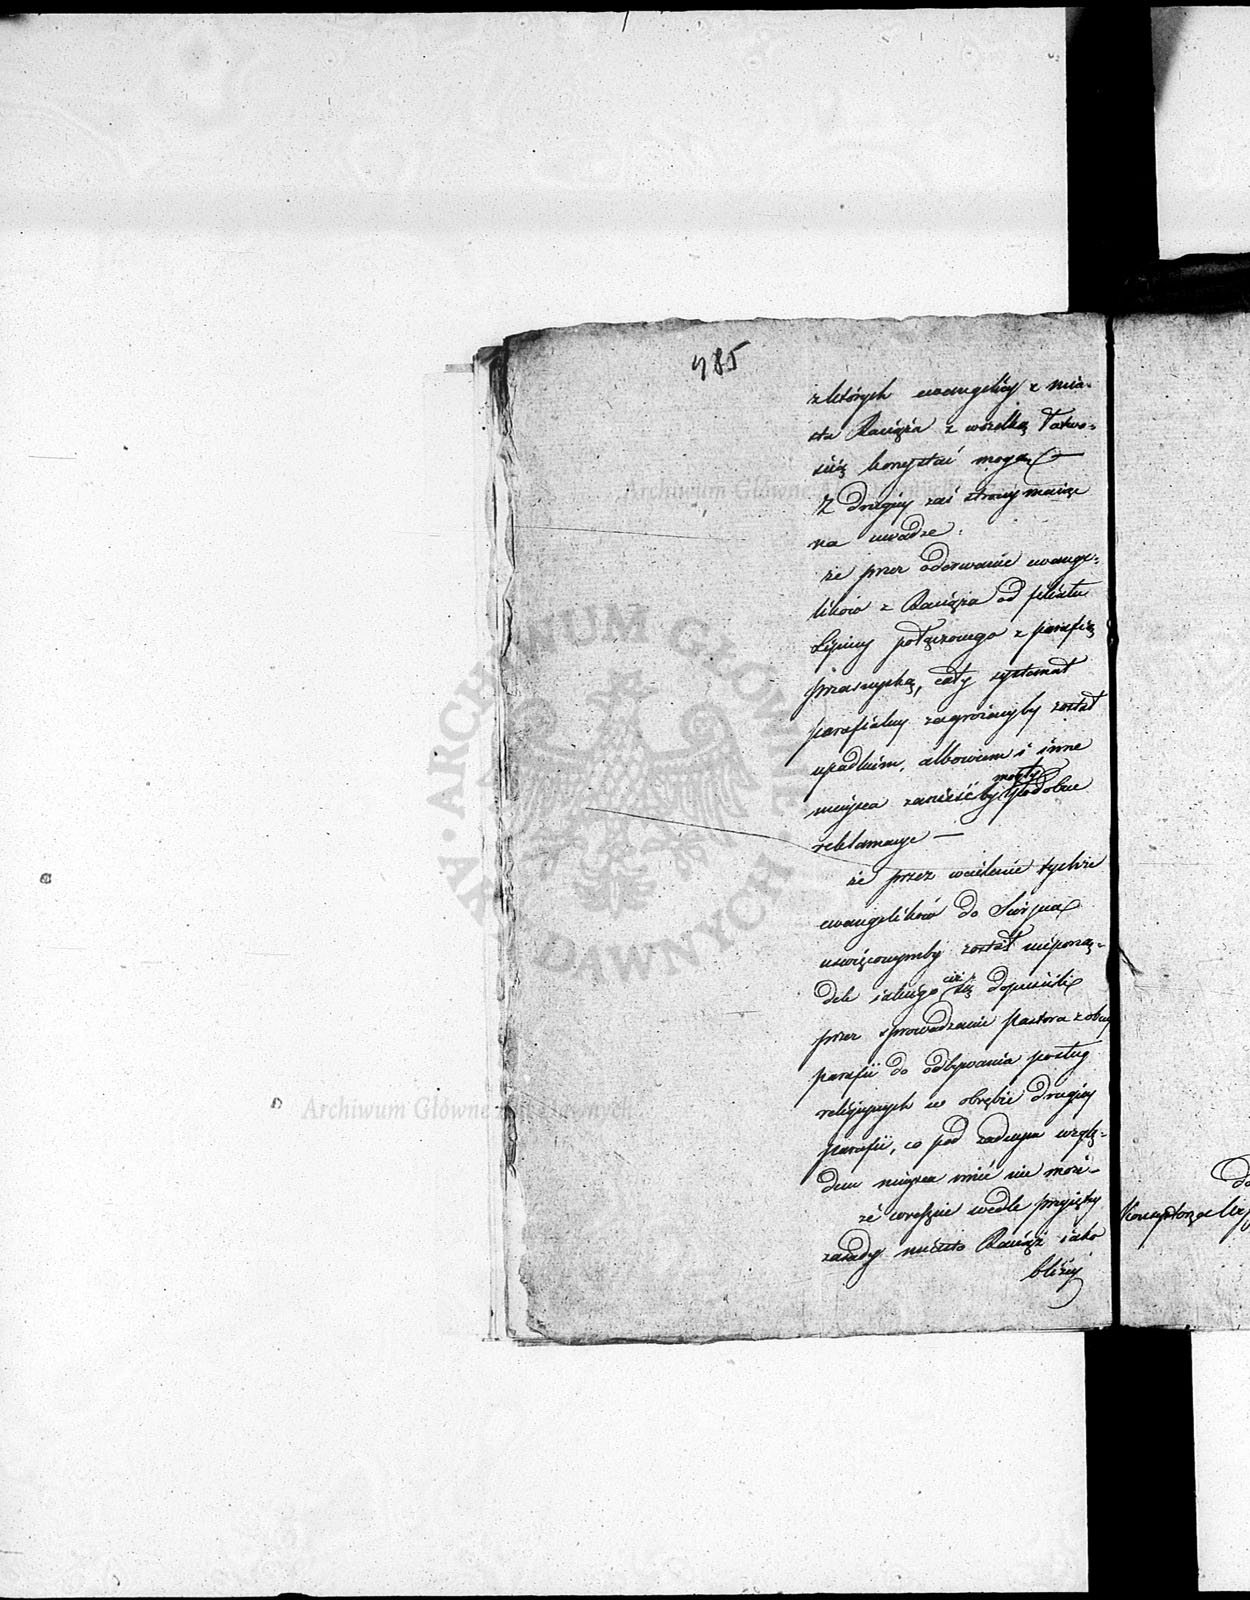 485
z których ewangelicy z mia-
sta Raciąża z wszelką łatwo-
ścią korzystać mogą
Z drugiey zaś strony maiąc
na uwadze:
że przez oderwanie ewange-
lików z Raciąża od filiału
Lipiny połączonego z parafią
przasnyską, cały systemat
parafialny zagrożonyby został
upadkiem, albowiem i inne
mieysca zanieść by mogły podobne
reklamacye —
że przez wcielenie tychże
ewangelików do Sierpca
uswięconymby został nieporzą-
dek iakiego się dopuścili
przez sprowadzanie Pastora z obcey
parafii do odbywania posług
religijnych w obrębie drugiey
parafii, co pod żadnym wzglę-
dem mieysca mieć nie może —
że wreszcie wedle przyiętey
zasady miasto Raciąż iako
bliżey
Archiwum Główne Akt Dawnych
ARCHIWUM GŁÓWNE AKT DAWNYCH
Archiwum Główne Akt Dawnych